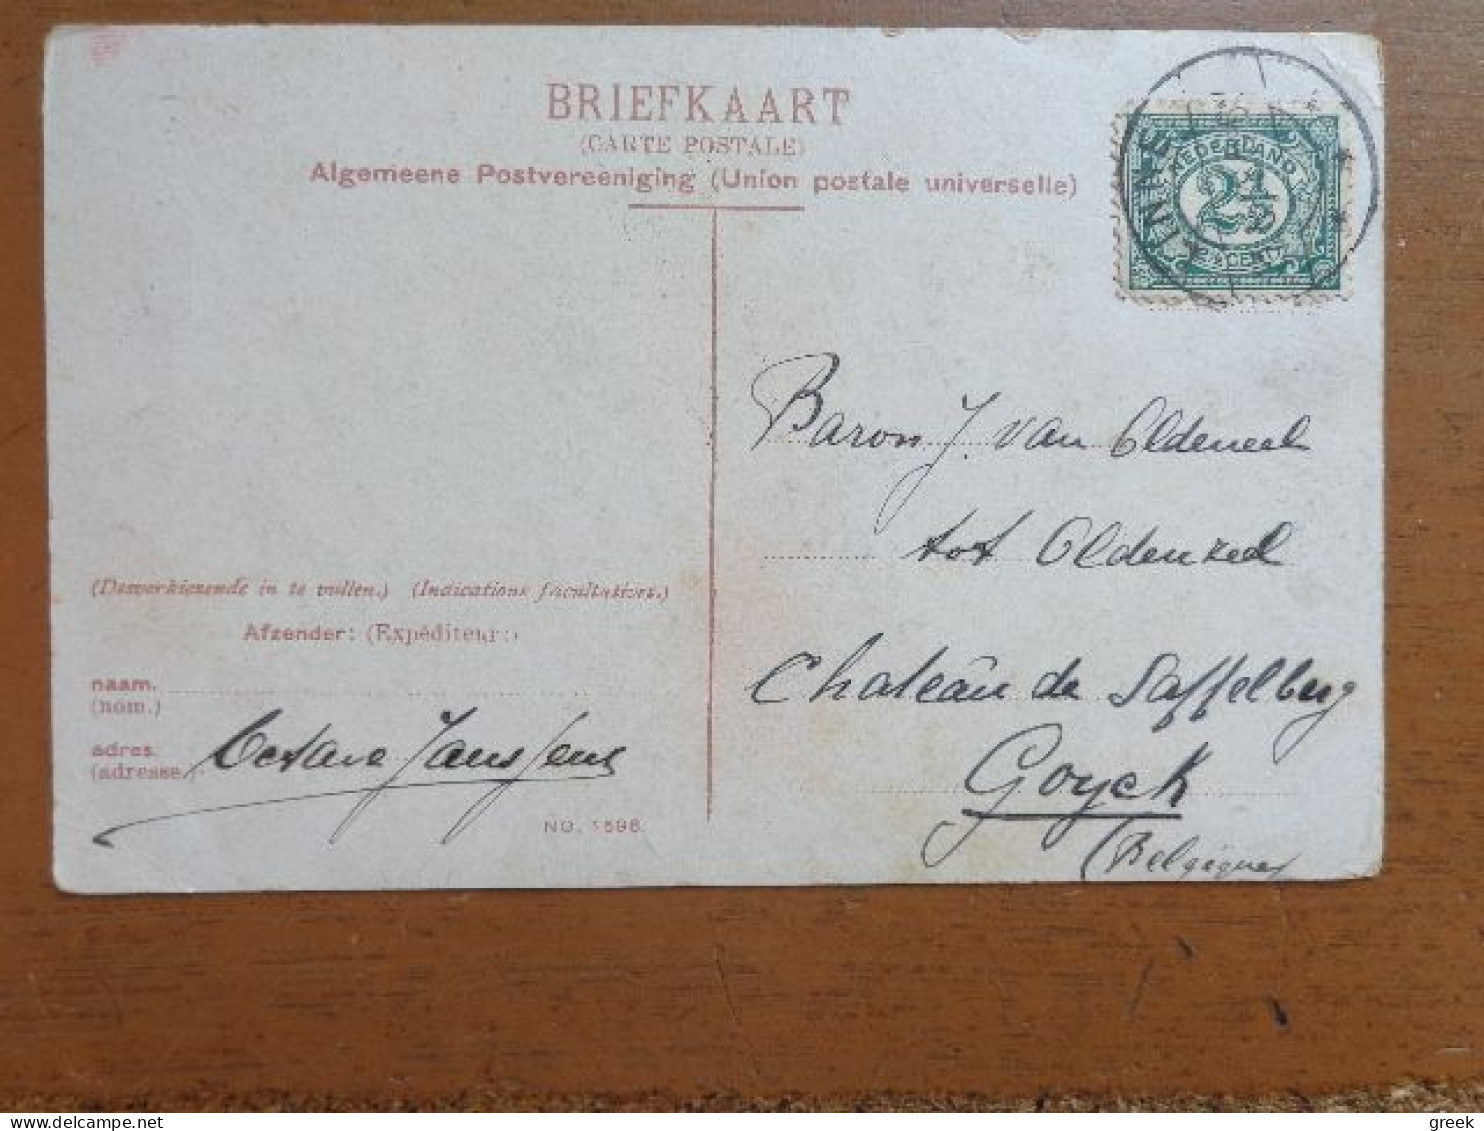 BRIEFKAART
(CARTE POSTALE)
Algemeene Postvereeniging (Union postale universelle)
LINNE
NEDERLAND
2½
CENT
Baron J. van Oldeneel
tot Oldenzeel
Château de Saffelberg
Goyck
(Belgique)
(Desverkiezende in te vullen.) (Indications facultatives.)
Afzender: (Expéditeur:)
naam.
(nom.)
adres.
(adresse.)
Octave Janssens
NO. 1596.
greek